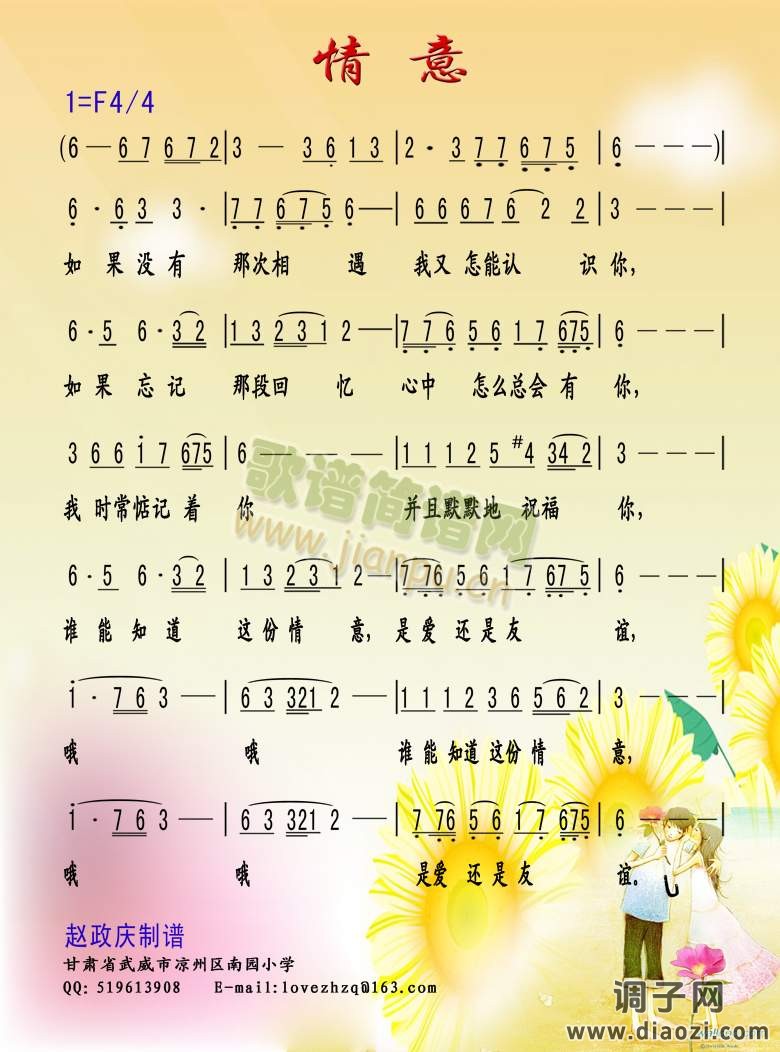 情 意
1=F4/4
(6 — 6 7 6 7 2 | 3 — 3 6 1 3 | 2 · 3 7 7 6 7 5 | 6 — — —)|
6 · 6 3 3 · | 7 7 6 7 5 6 — | 6 6 6 7 6 2 2 | 3 — — — |
如 果 没 有 那次相 遇 我又 怎能认 识 你,
6 · 5 6 · 3 2 | 1 3 2 3 1 2 — | 7 7 6 5 6 1 7 6 7 5 | 6 — — — |
如 果 忘 记 那段回 忆 心中 怎么总会 有 你,
3 6 6 i 7 6 7 5 | 6 — — — | 1 1 1 2 5 #4 3 4 2 | 3 — — — |
我 时常惦记 着 你 并且默默地 祝福 你,
6 · 5 6 · 3 2 | 1 3 2 3 1 2 — | 7 7 6 5 6 1 7 6 7 5 | 6 — — — |
谁 能 知 道 这份情 意, 是 爱 还 是 友 谊,
i · 7 6 3 — | 6 3 3 2 1 2 — | 1 1 1 2 3 6 5 6 2 | 3 — — — |
哦 哦 谁能 知道 这份 情 意,
i · 7 6 3 — | 6 3 3 2 1 2 — | 7 7 6 5 6 1 7 6 7 5 | 6 — — — |
哦 哦 是爱 还是友 谊。
赵政庆制谱
甘肃省武威市凉州区南园小学
QQ: 519613908 E-mail:lovezhzq@163.com
歌谱简谱网
www.jianpu.cn
调子网
www.diaozi.com